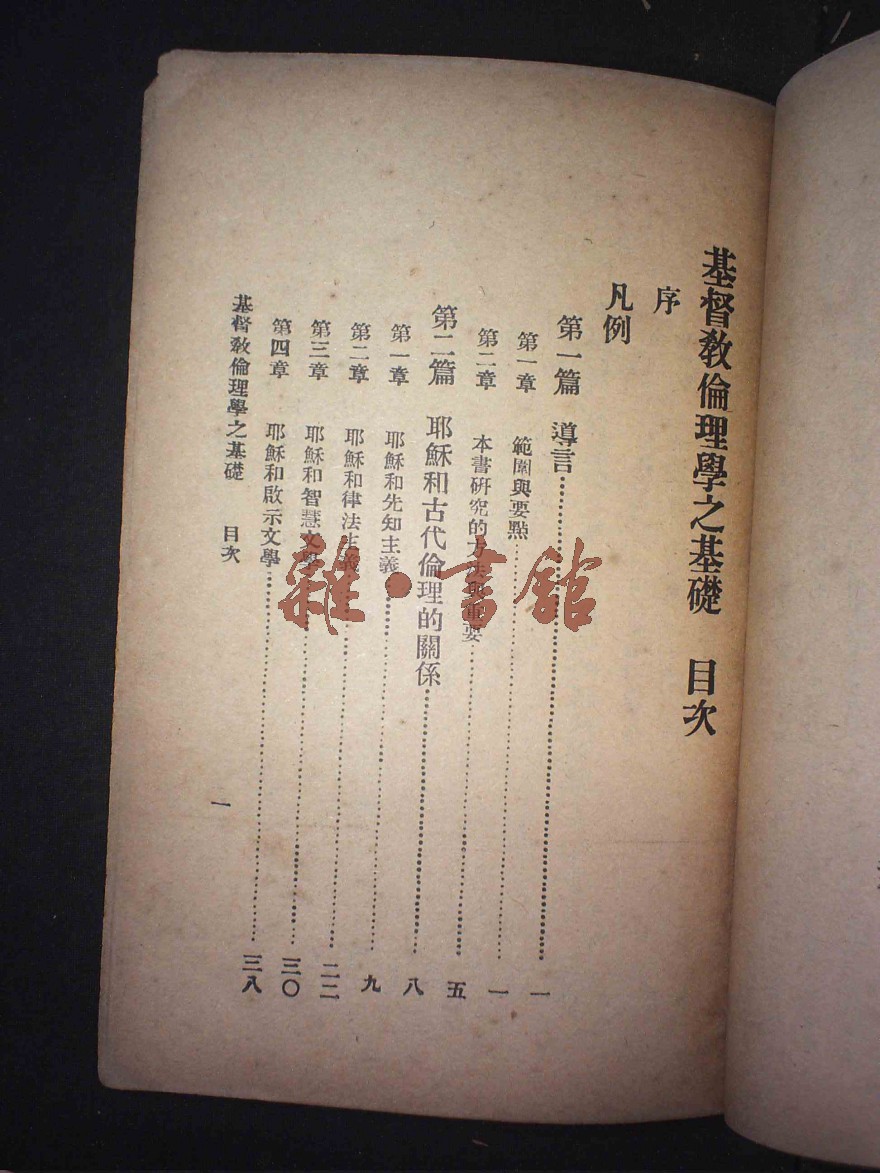 基督教倫理學之基礎 目次
序
凡例
第一篇 導言 一
第一章 範圍與要點 一
第二章 本書研究的方法與重要 五
第二篇 耶穌和古代倫理的關係 八
第一章 耶穌和先知主義 九
第二章 耶穌和律法主義 二二
第三章 耶穌和智慧文學 三〇
第四章 耶穌和啟示文學 三八
基督教倫理學之基礎 目次 一
雜·書館